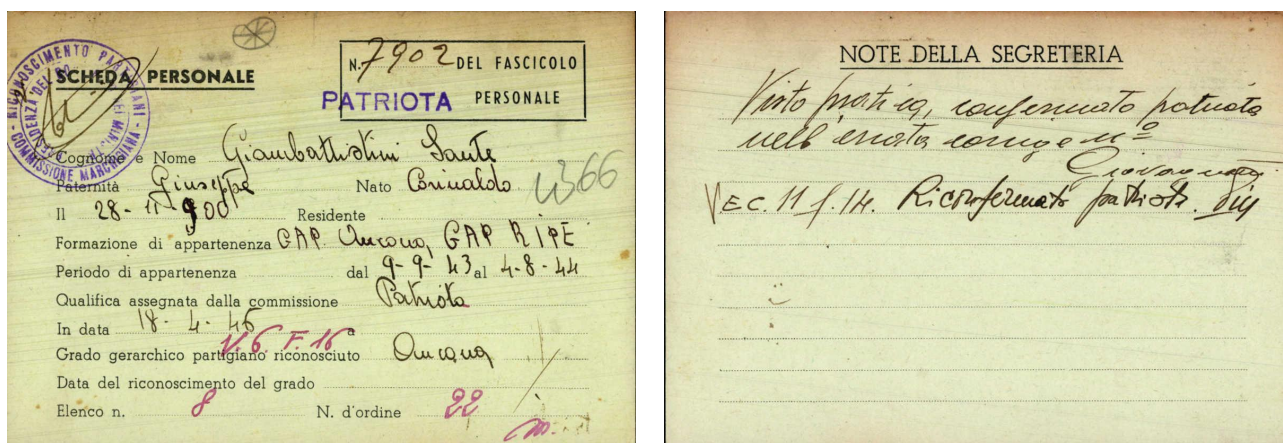 RICONOSCIMENTO PARTIGIANI
COMMISSIONE MARCHIGIANA
SCHEDA PERSONALE
N. 7902 DEL FASCICOLO
PATRIOTA PERSONALE
Cognome e Nome Giambattistini Sante
Paternità Giuseppe Nato Corinaldo
Il 28-11-900 Residente
Formazione di appartenenza GAP. Ancona, GAP RIPE
Periodo di appartenenza dal 9-9-43 al 4-8-44
Qualifica assegnata dalla commissione Patriota
In data 18-4-46 a
V.6. F.16
Grado gerarchico partigiano riconosciuto Ancona
Data del riconoscimento del grado
Elenco n. 8 N. d'ordine 22
NOTE DELLA SEGRETERIA
Visto pratica, confermato patriota
nell'errata corrige nº
V.E.C. 11 f. 14. Riconfermato patriota.